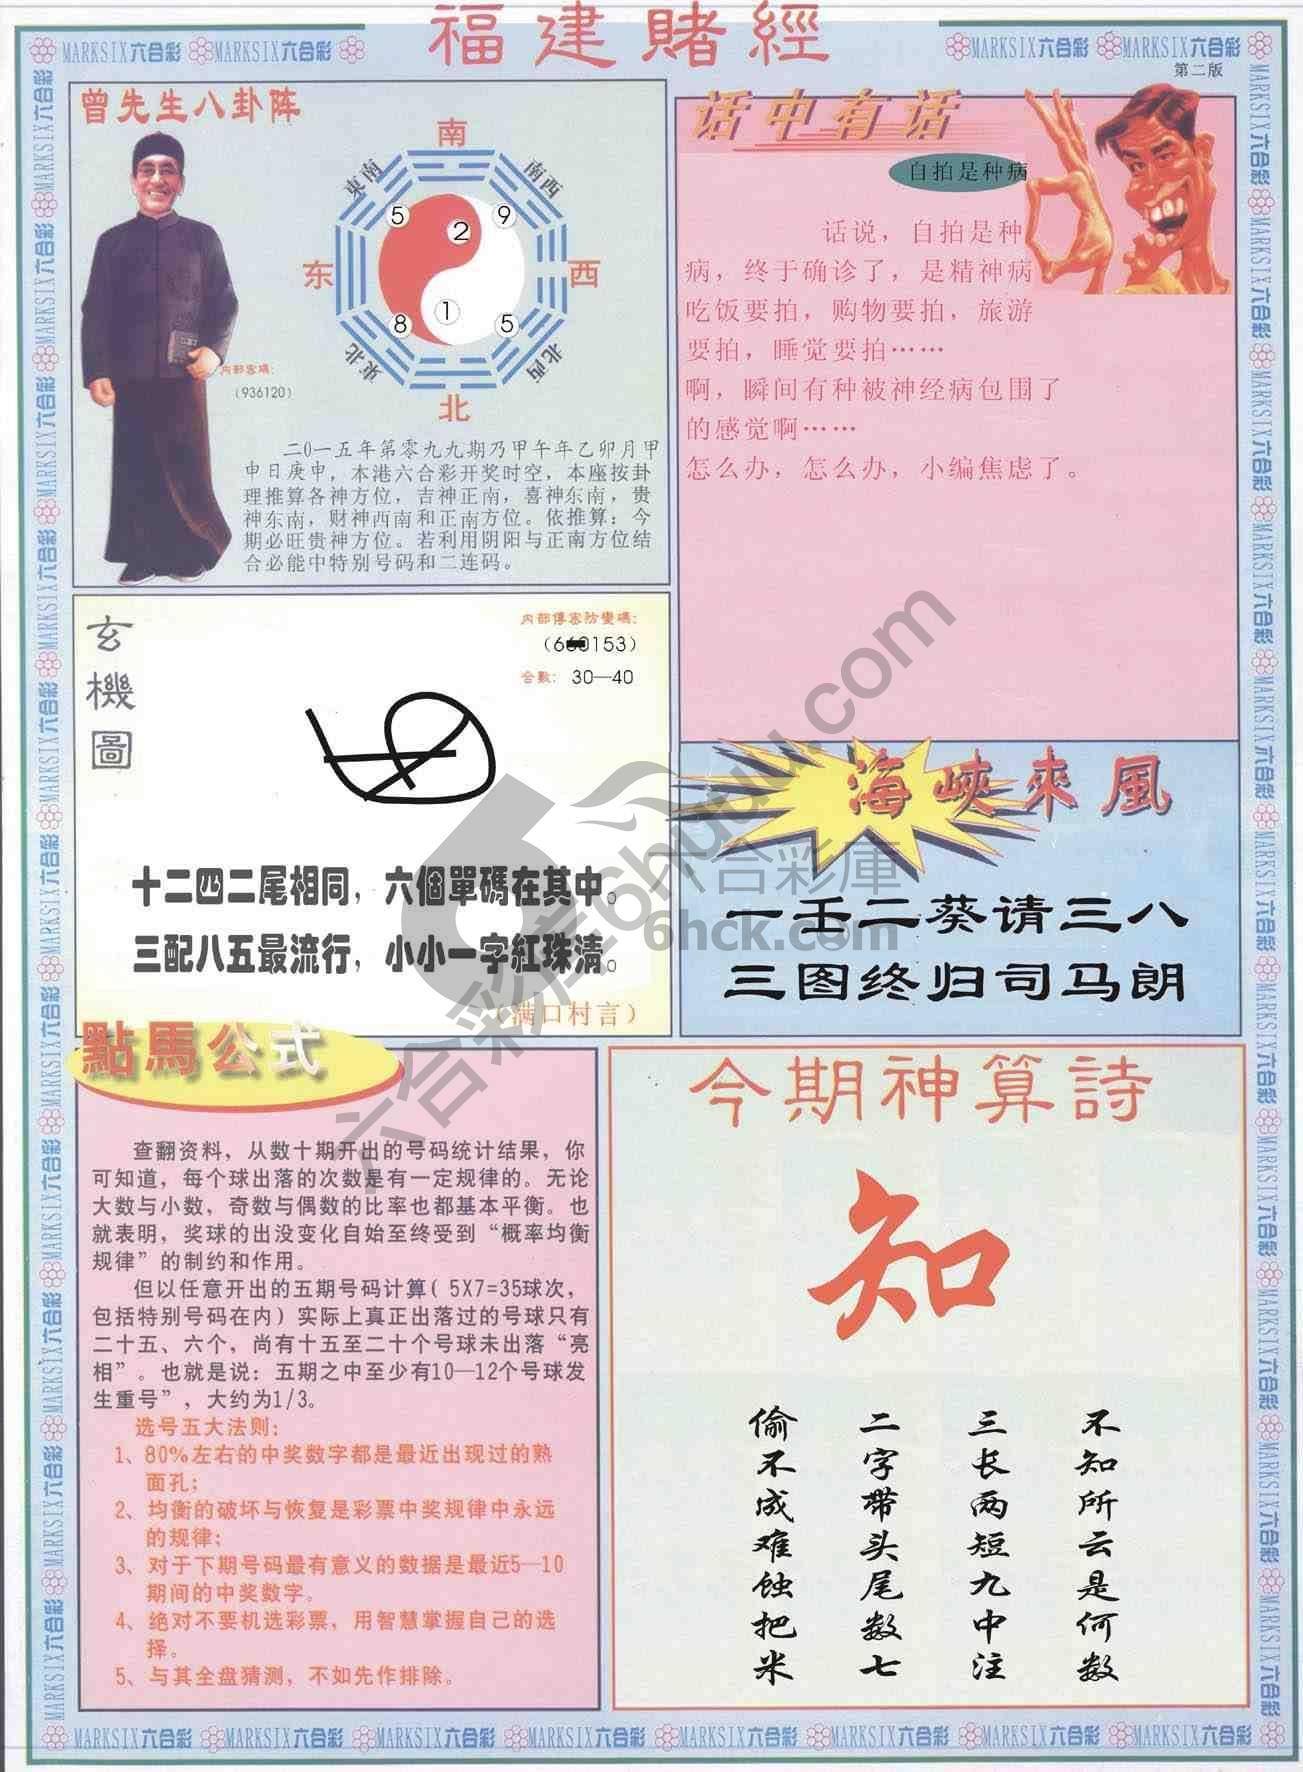 福建賭經
第二版
MARKSIX六合彩 MARKSIX六合彩
MARKSIX六合彩 MARKSIX六合彩
曾先生八卦阵
南
東南
南西
5
2
9
东
西
8
1
5
東北
北西
北
内部密碼:
(936120)
二0一五年第零九九期乃甲午年乙卯月甲
申日庚申，本港六合彩开奖时空，本座按卦
理推算各神方位，吉神正南，喜神东南，贵
神东南，财神西南和正南方位。依推算：今
期必旺贵神方位。若利用阴阳与正南方位结
合必能中特别号码和二连码。
话中有话
自拍是种病
话说，自拍是种
病，终于确诊了，是精神病
吃饭要拍，购物要拍，旅游
要拍，睡觉要拍……
啊，瞬间有种被神经病包围了
的感觉啊……
怎么办，怎么办，小编焦虑了。
玄機圖
内部傳密防變碼:
153)
合數: 30—40
十二四二尾相同，六個單碼在其中。
三配八五最流行，小小一字紅珠清。
(满口村言)
海峽來風
一壬二葵请三八
三图终归司马朗
六合彩庫
6hck.com
點馬公式
查翻资料，从数十期开出的号码统计结果，你
可知道，每个球出落的次数是有一定规律的。无论
大数与小数，奇数与偶数的比率也都基本平衡。也
就表明，奖球的出没变化自始至终受到“概率均衡
规律”的制约和作用。
但以任意开出的五期号码计算( 5X7=35球次，
包括特别号码在内) 实际上真正出落过的号球只有
二十五、六个，尚有十五至二十个号球未出落“亮
相”。也就是说：五期之中至少有10—12个号球发
生重号”，大约为1/3。
选号五大法则:
1、80%左右的中奖数字都是最近出现过的熟
面孔;
2、均衡的破坏与恢复是彩票中奖规律中永远
的规律;
3、对于下期号码最有意义的数据是最近5—10
期间的中奖数字。
4、绝对不要机选彩票，用智慧掌握自己的选
择。
5、与其全盘猜测，不如先作排除。
今期神算詩
知
不知所云是何数
三长两短九中注
二字带头尾数七
偷不成难蚀把米
MARKSIX六合彩 MARKSIX六合彩 MARKSIX六合彩 MARKSIX六合彩 MARKSIX六合彩 MARKSIX六合彩 MARKSIX六合彩 MARKSIX六合彩